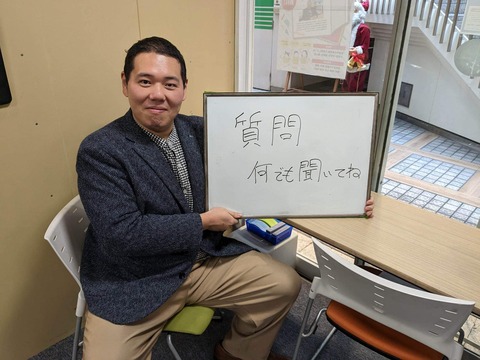 質問
何でも聞いてね